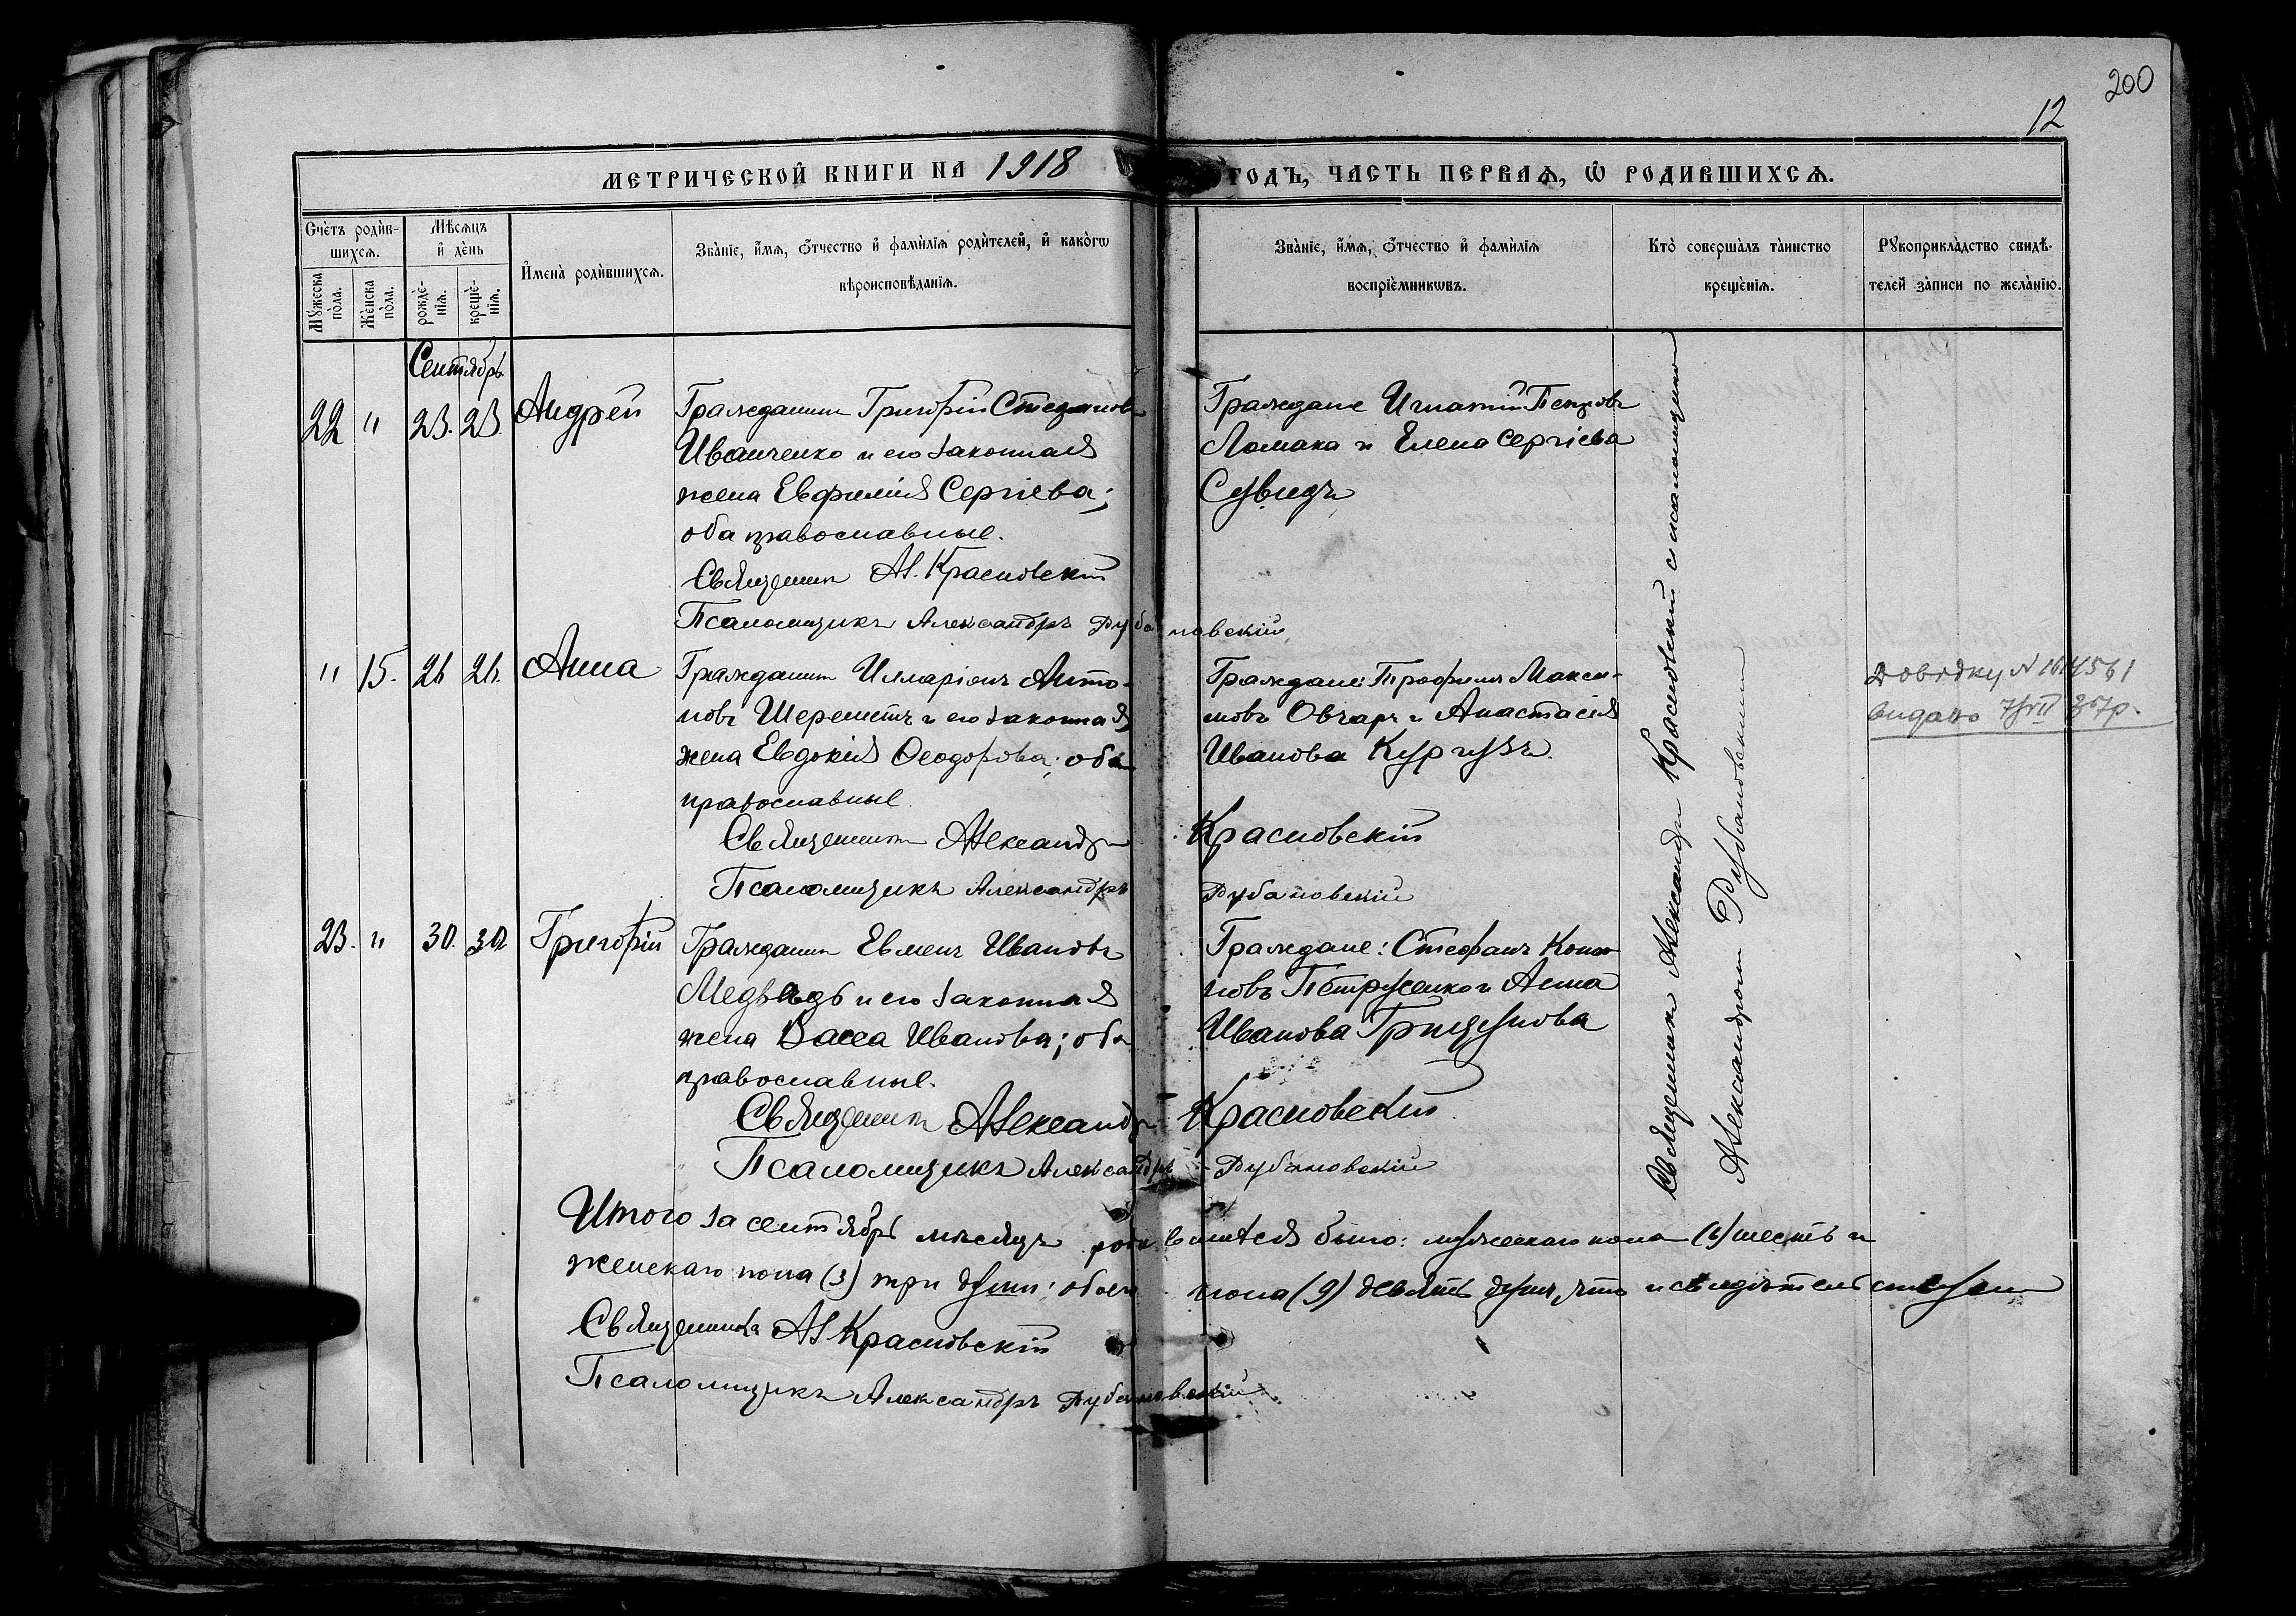 200
12
МЕТРИЧЕСКОЙ КНИГИ НА 1918 ГОДЪ, ЧАСТЬ ПЕРВАѦ, Ѡ РОДИВШИХСѦ.
Счетъ родившихсѧ.
Мужеска пола.
Женска пола.
Мѣсѧцъ и день
рожденїѧ.
крещенїѧ.
Имена родившихсѧ.
Званїе, имѧ, отчество и фамилїѧ родителей, и какогѡ
вѣроисповѣданїѧ.
Званїе, имѧ, отчество и фамилїѧ
воспрїемникѡвъ.
Кто совершалъ таинство
крещенїѧ.
Рукоприкладство свидѣ-
телей записи по желанїю.
Сентябрь
22 " 23. 23. Андрей
Гражданинъ Григорій Стефановъ
Иванченко и его законная
жена Евфимія Сергіева;
оба православные.
Священникъ Ал. Красновскій
Псаломщикъ Александръ Рубановскій
Граждане Игнатій Петровъ
Ломака и Елена Сергіева
Сувидъ
" 15. 26 26. Анна
Гражданинъ Илларіонъ Анто-
новъ Шереметъ и его законная
жена Евдокія Ѳеодорова; оба
православные
Священникъ Александръ Красновскій
Псаломщикъ Александръ Рубановскій
Граждане: Трофимъ Макси-
мовъ Овчаръ и Анастасія
Иванова Кургузъ.
Довідку N 1614561
видано
23. " 30. 30 Григорій
Гражданинъ Евменъ Ивановъ
Медвѣдь и его законная
жена Васса Иванова; оба
православные.
Священникъ Александръ Красновскій
Псаломщикъ Александръ Рубановскій
Граждане: Стефанъ Коно-
новъ Петрусенко и Анна
Иванова Грицунова
Священникъ Александръ Красновскій съ псаломщикомъ
Александромъ Рубановскимъ
Итого за сентябрь мѣсяцъ родившихся было: мужескаго пола (6) шесть и
женскаго пола (3) три души; обоего пола (9) девять душъ, что и свидѣтельствуемъ
Священникъ Ал Красновскій
Псаломщикъ Александръ Рубановскій